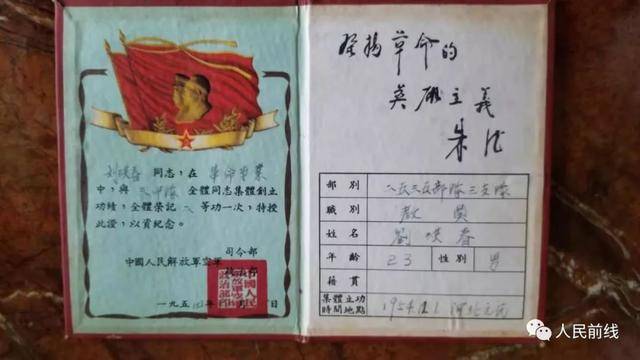 同志，在革命事業
中，與 三中隊 全體同志集體創立
功績，全體榮記 二 等功一次，特授
此證，以資紀念。
司令部
中國人民解放軍空軍
政治部
一九五
發揚革命的
英雄主義
朱德
部別 三支隊
職別 教員
姓名 劉 春
年齡 23 性別 男
籍貫
集體立功
時間地點 1954
人民前线